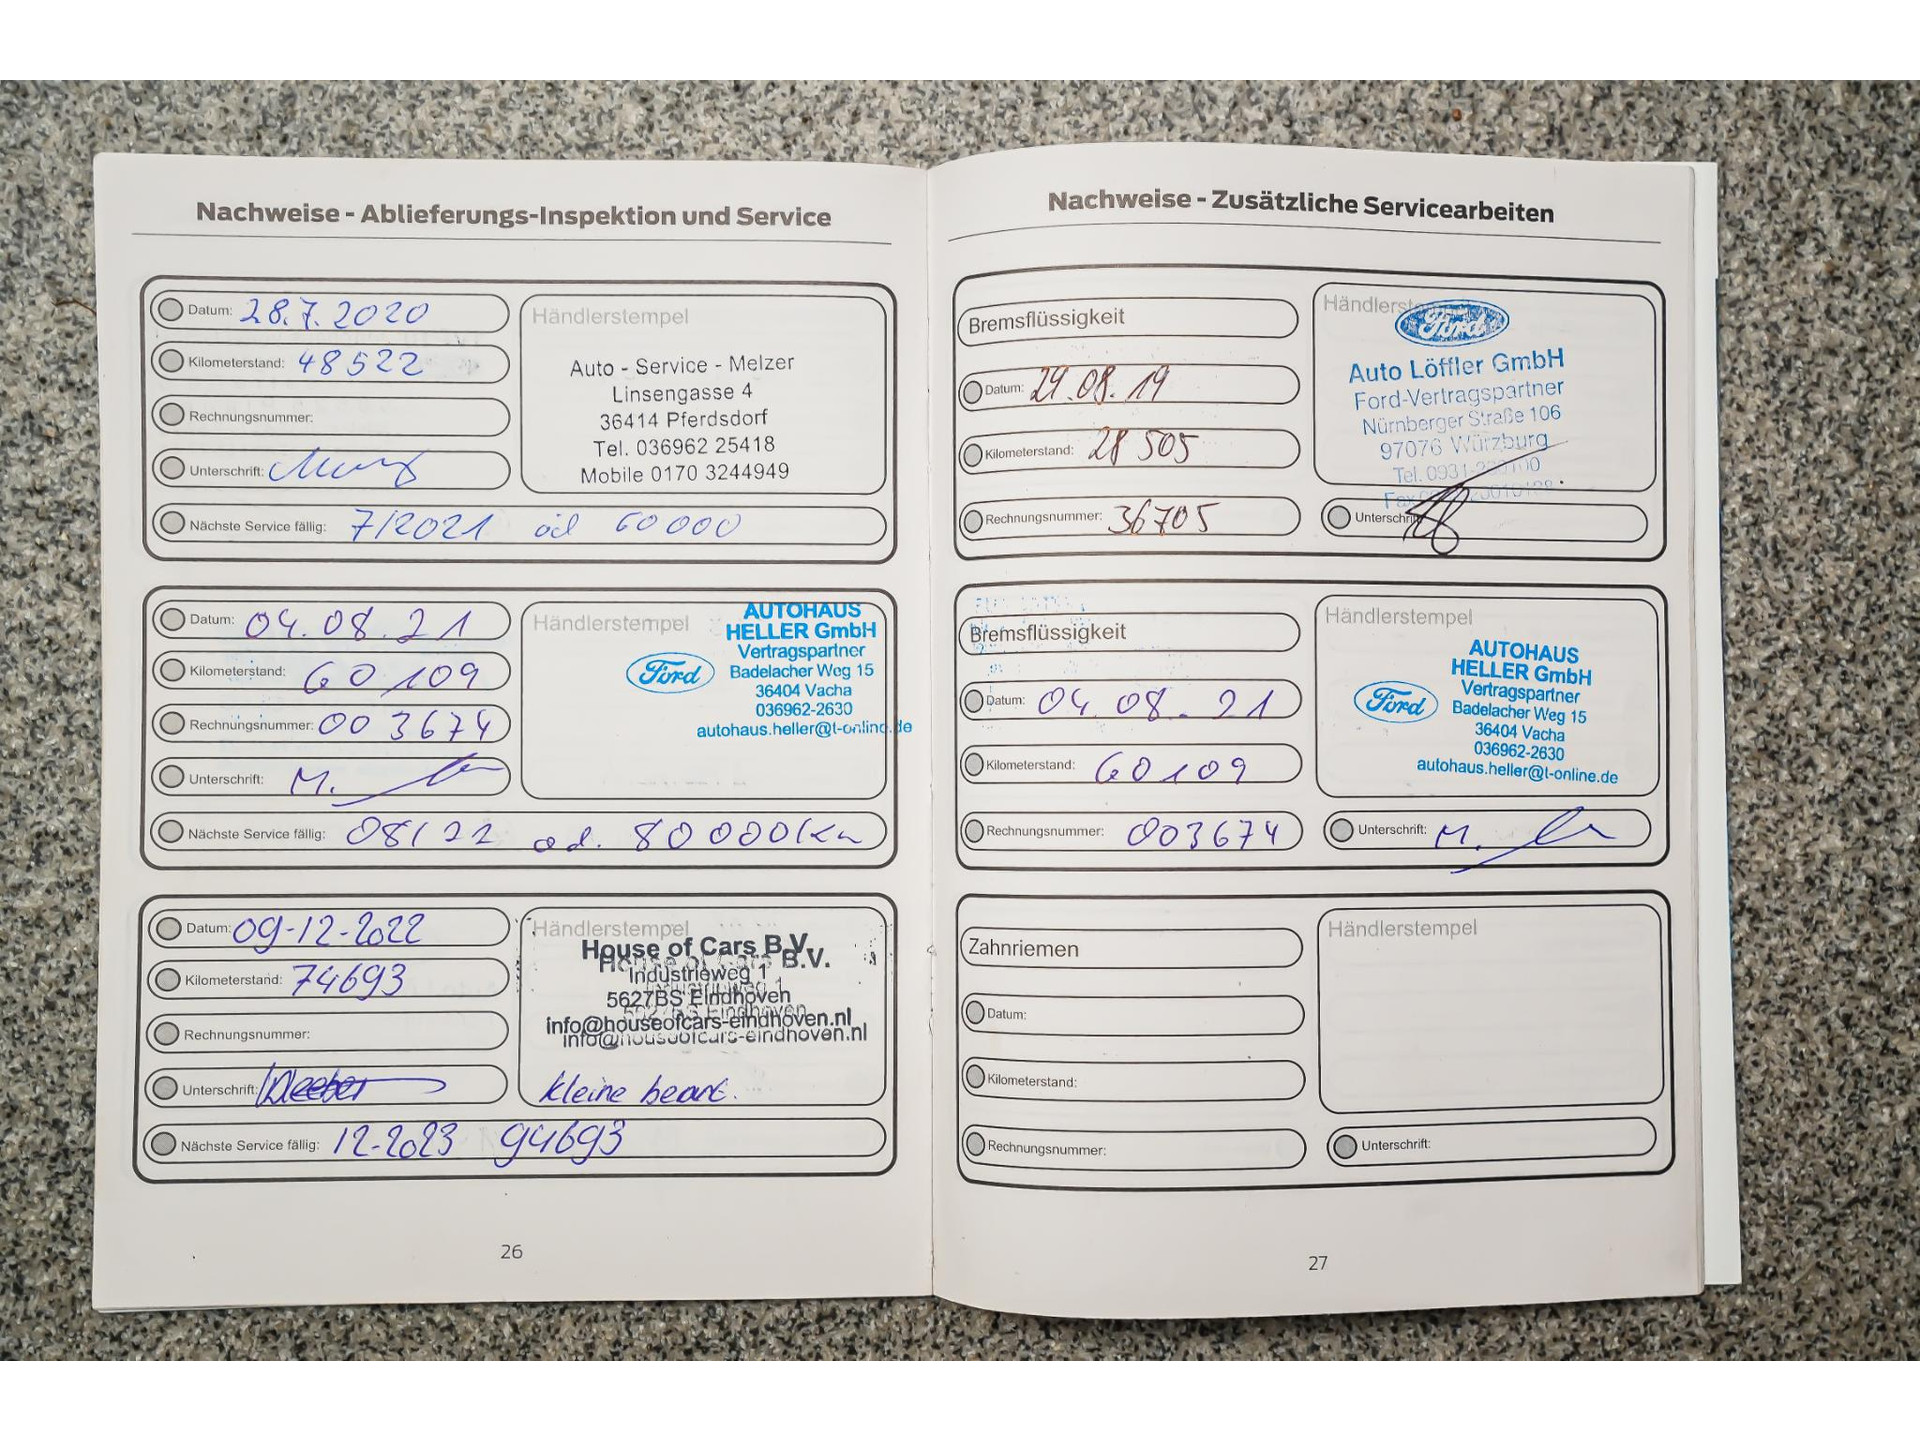 Nachweise - Ablieferungs-Inspektion und Service
Datum: 28.7.2020
Kilometerstand: 48522
Rechnungsnummer:
Unterschrift:
Nächste Service fällig: 7/2021 od 60000
Händlerstempel
Auto - Service - Melzer
Linsengasse 4
36414 Pferdsdorf
Tel. 036962 25418
Mobile 0170 3244949
Datum: 04.08.21
Kilometerstand: 60109
Rechnungsnummer: 003674
Unterschrift: M.
Nächste Service fällig: 08/22 od. 80000km
Händlerstempel
AUTOHAUS
HELLER GmbH
Vertragspartner
Ford
Badelacher Weg 15
36404 Vacha
036962-2630
autohaus.heller@t-online.de
Datum: 09-12-2022
Kilometerstand: 74693
Rechnungsnummer:
Unterschrift:
Nächste Service fällig: 12-2023 94693
Händlerstempel
House of Cars B.V.
Industrieweg 1
5627BS Eindhoven
info@houseofcars-eindhoven.nl
kleine beurt.
26
Nachweise - Zusätzliche Servicearbeiten
Bremsflüssigkeit
Datum: 29.08.19
Kilometerstand: 28 505
Rechnungsnummer: 36705
Ford
Auto Löffler GmbH
Ford-Vertragspartner
Nürnberger Straße 106
97076 Würzburg
Bremsflüssigkeit
Datum: 04.08.21
Kilometerstand: 60109
Rechnungsnummer: 003674
Händlerstempel
AUTOHAUS
HELLER GmbH
Vertragspartner
Ford
Badelacher Weg 15
36404 Vacha
036962-2630
autohaus.heller@t-online.de
Unterschrift: M.
Zahnriemen
Datum:
Kilometerstand:
Rechnungsnummer:
Händlerstempel
Unterschrift:
27